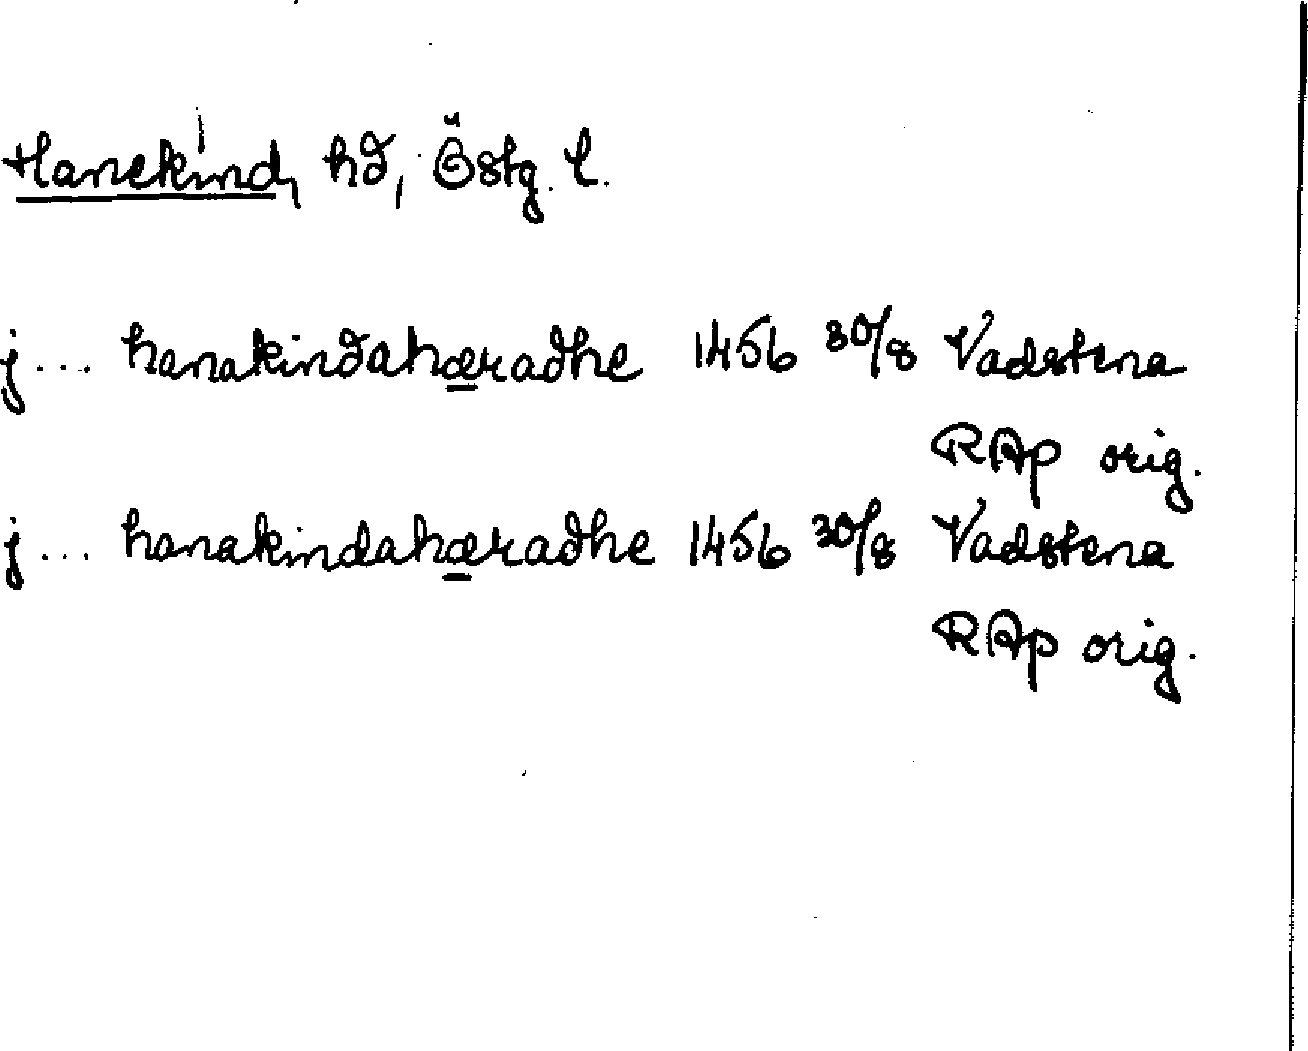 Hanekind, hd, Östg. l.
j ... hanakindahæradhe 1456 30/8 Vadstena
RAp orig.
j ... hanakindahæradhe 1456 30/8 Vadstena
RAp orig.